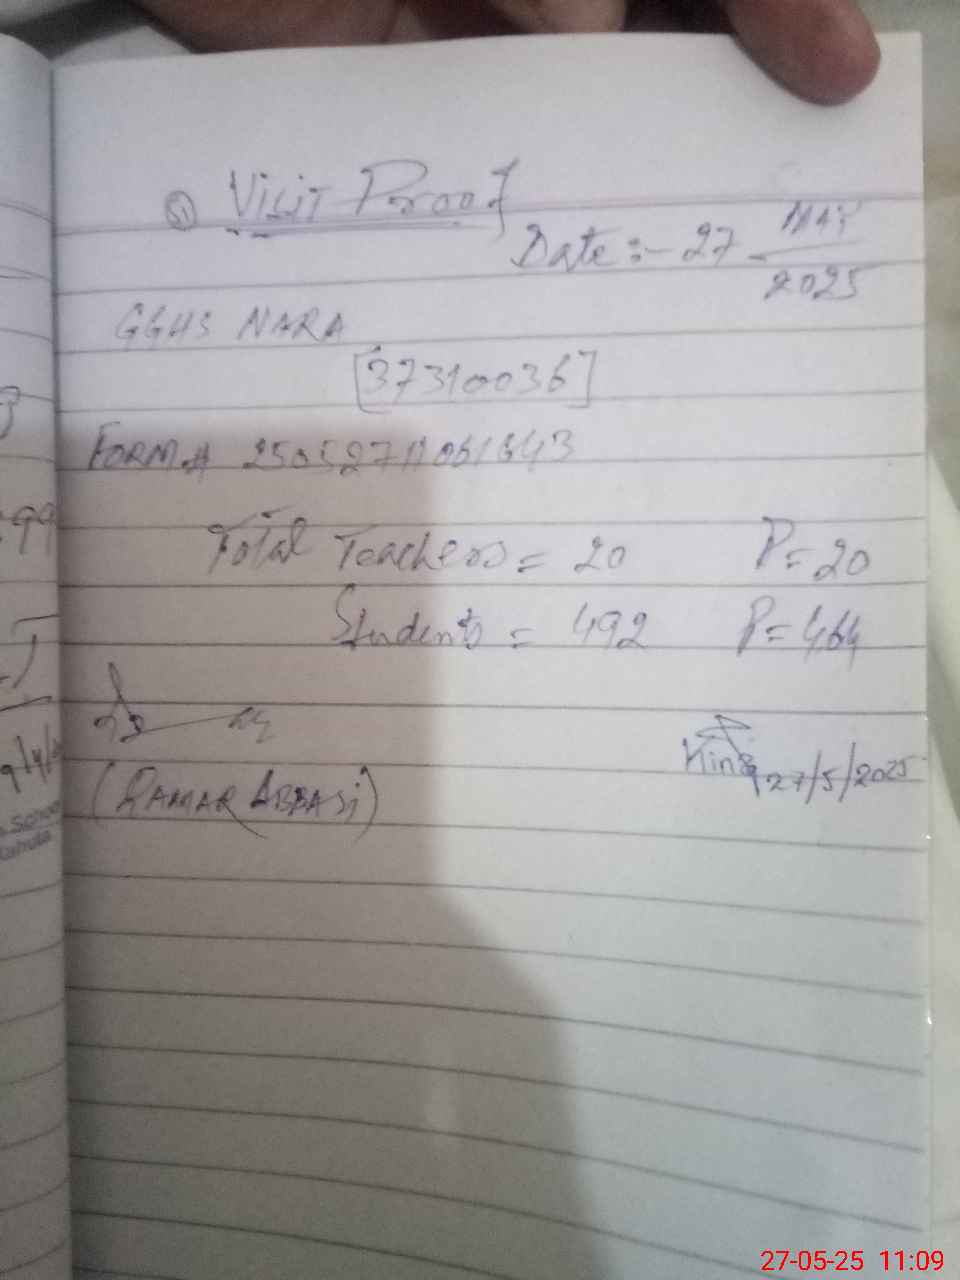 51 Visit Proof
Date :- 27 MAY
2025
GGHS NARA
[37310036]
FORM# 
Total Teachers = 20 P= 20
Students = 492 P= 464
(QAMAR ABBASI)
27/5/2025
27-05-25 11:09